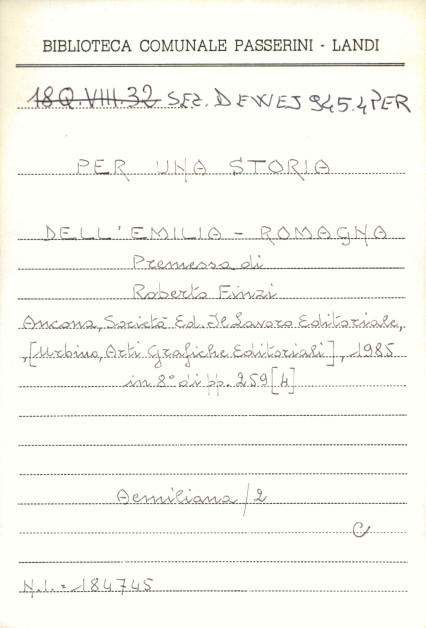 BIBLIOTECA COMUNALE PASSERINI - LANDI
18Q.VIII.32 SEZ. DEWEJ 945.4 PER
PER UNA STORIA
DELL'EMILIA - ROMAGNA
Premessa di
Roberto Finzi
Ancona, Società Ed. Il Lavoro Editoriale,
,[Urbino, Arti Grafiche Editoriali], 1985
in 8° di pp. 259[4]
Aemiliana/2
C
N.I. = 184745